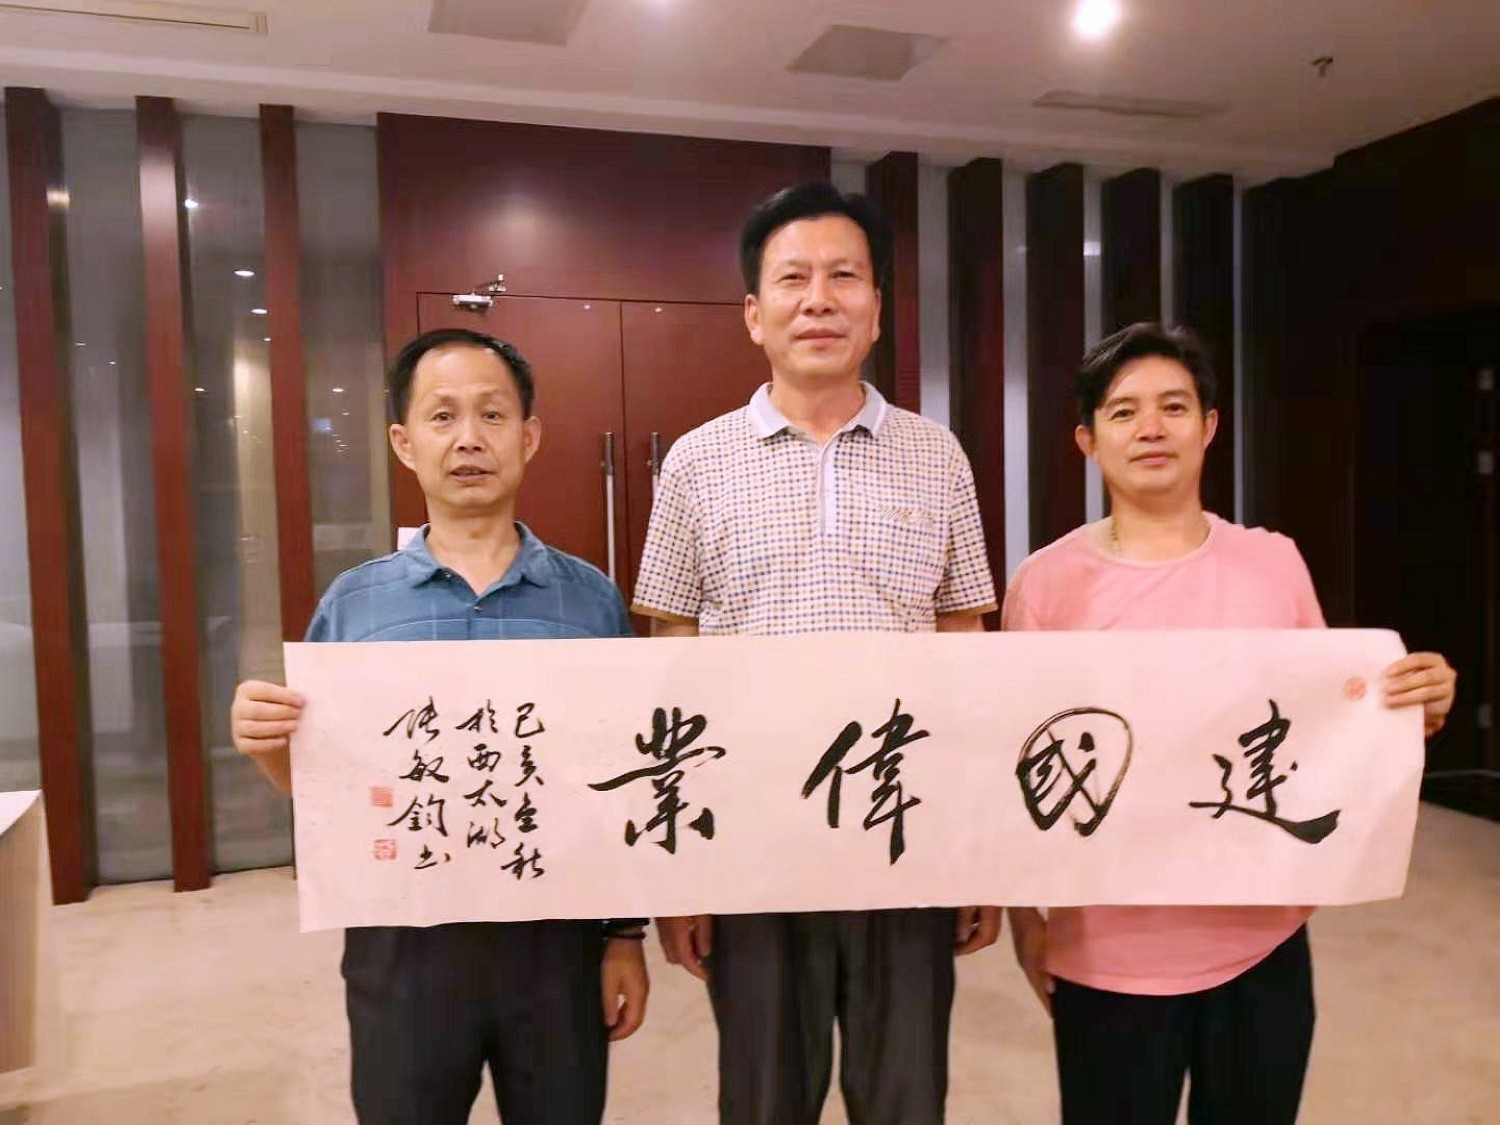 建國偉業
己亥金秋
於西太湖
張敏鈞书